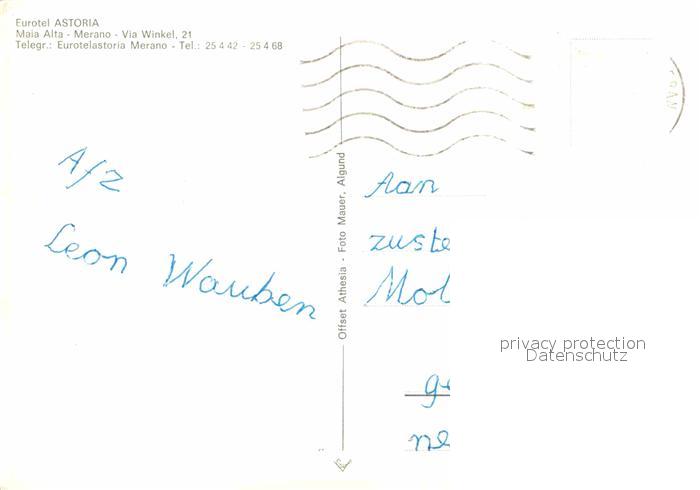 Eurotel ASTORIA
Maia Alta - Merano - Via Winkel, 21
Telegr.: Eurotelastoria Merano - Tel.: 25 4 42 - 25 4 68
Afz
Leon Wauben
Offset Athesia - Foto Mauer, Algund
Aan
zuste
Mol
ge
ne
privacy protection
Datenschutz